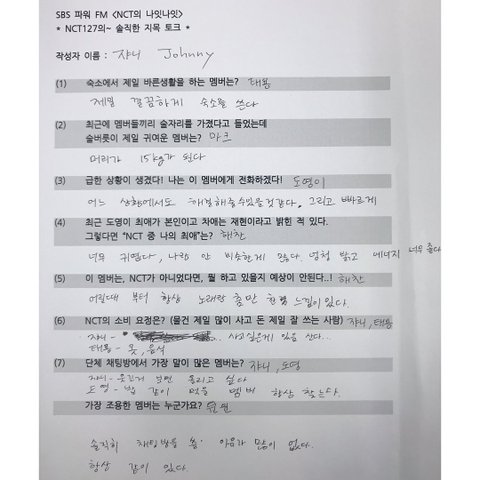 SBS 파워 FM <NCT의 나잇나잇>
* NCT127의~ 솔직한 지목 토크 *
작성자 이름 : 쟈니 Johnny
(1) 숙소에서 제일 바른생활을 하는 멤버는? 태용
제일 깔끔하게 숙소를 쓴다
(2) 최근에 멤버들끼리 술자리를 가졌다고 들었는데
술버릇이 제일 귀여운 멤버는? 마크
머리가 15kg가 된다
(3) 급한 상황이 생겼다! 나는 이 멤버에게 전화하겠다! 도영이
어느 상황에서도 해결해줄수있을것같다. 그리고 빠르게
(4) 최근 도영이 최애가 본인이고 차애는 재현이라고 밝힌 적 있다.
그렇다면 "NCT 중 나의 최애"는? 해찬
너무 귀엽다, 나랑 안 비슷한게 많다. 엄청 밝고 에너지 너무 좋다
(5) 이 멤버는, NCT가 아니었다면, 뭘 하고 있을지 예상이 안된다..! 해찬
어릴때 부터 항상 노래랑 춤만 한 느낌이 있다.
(6) NCT의 소비 요정은? (물건 제일 많이 사고 돈 제일 잘 쓰는 사람) 쟈니, 태용
쟈니 - 사고싶은게 있음 산다...
태용 - 옷, 음식
(7) 단체 채팅방에서 가장 말이 많은 멤버는? 쟈니, 도영
쟈니 - 웃긴거 보면 올리고 싶다
도영 - 밥 같이 먹을 멤버 항상 찾는다.
가장 조용한 멤버는 누군가요? 윈윈
솔직히 채팅방을 씀. 아음가 많이 없다.
항상 같이 있다.